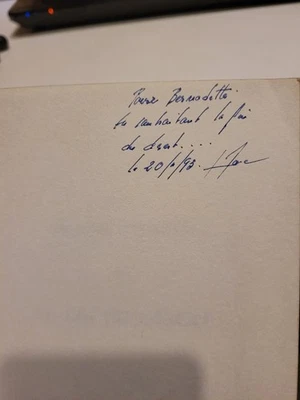 Pour Bernadette.
En souhaitant la fin
du désert....
le 20/ /93.